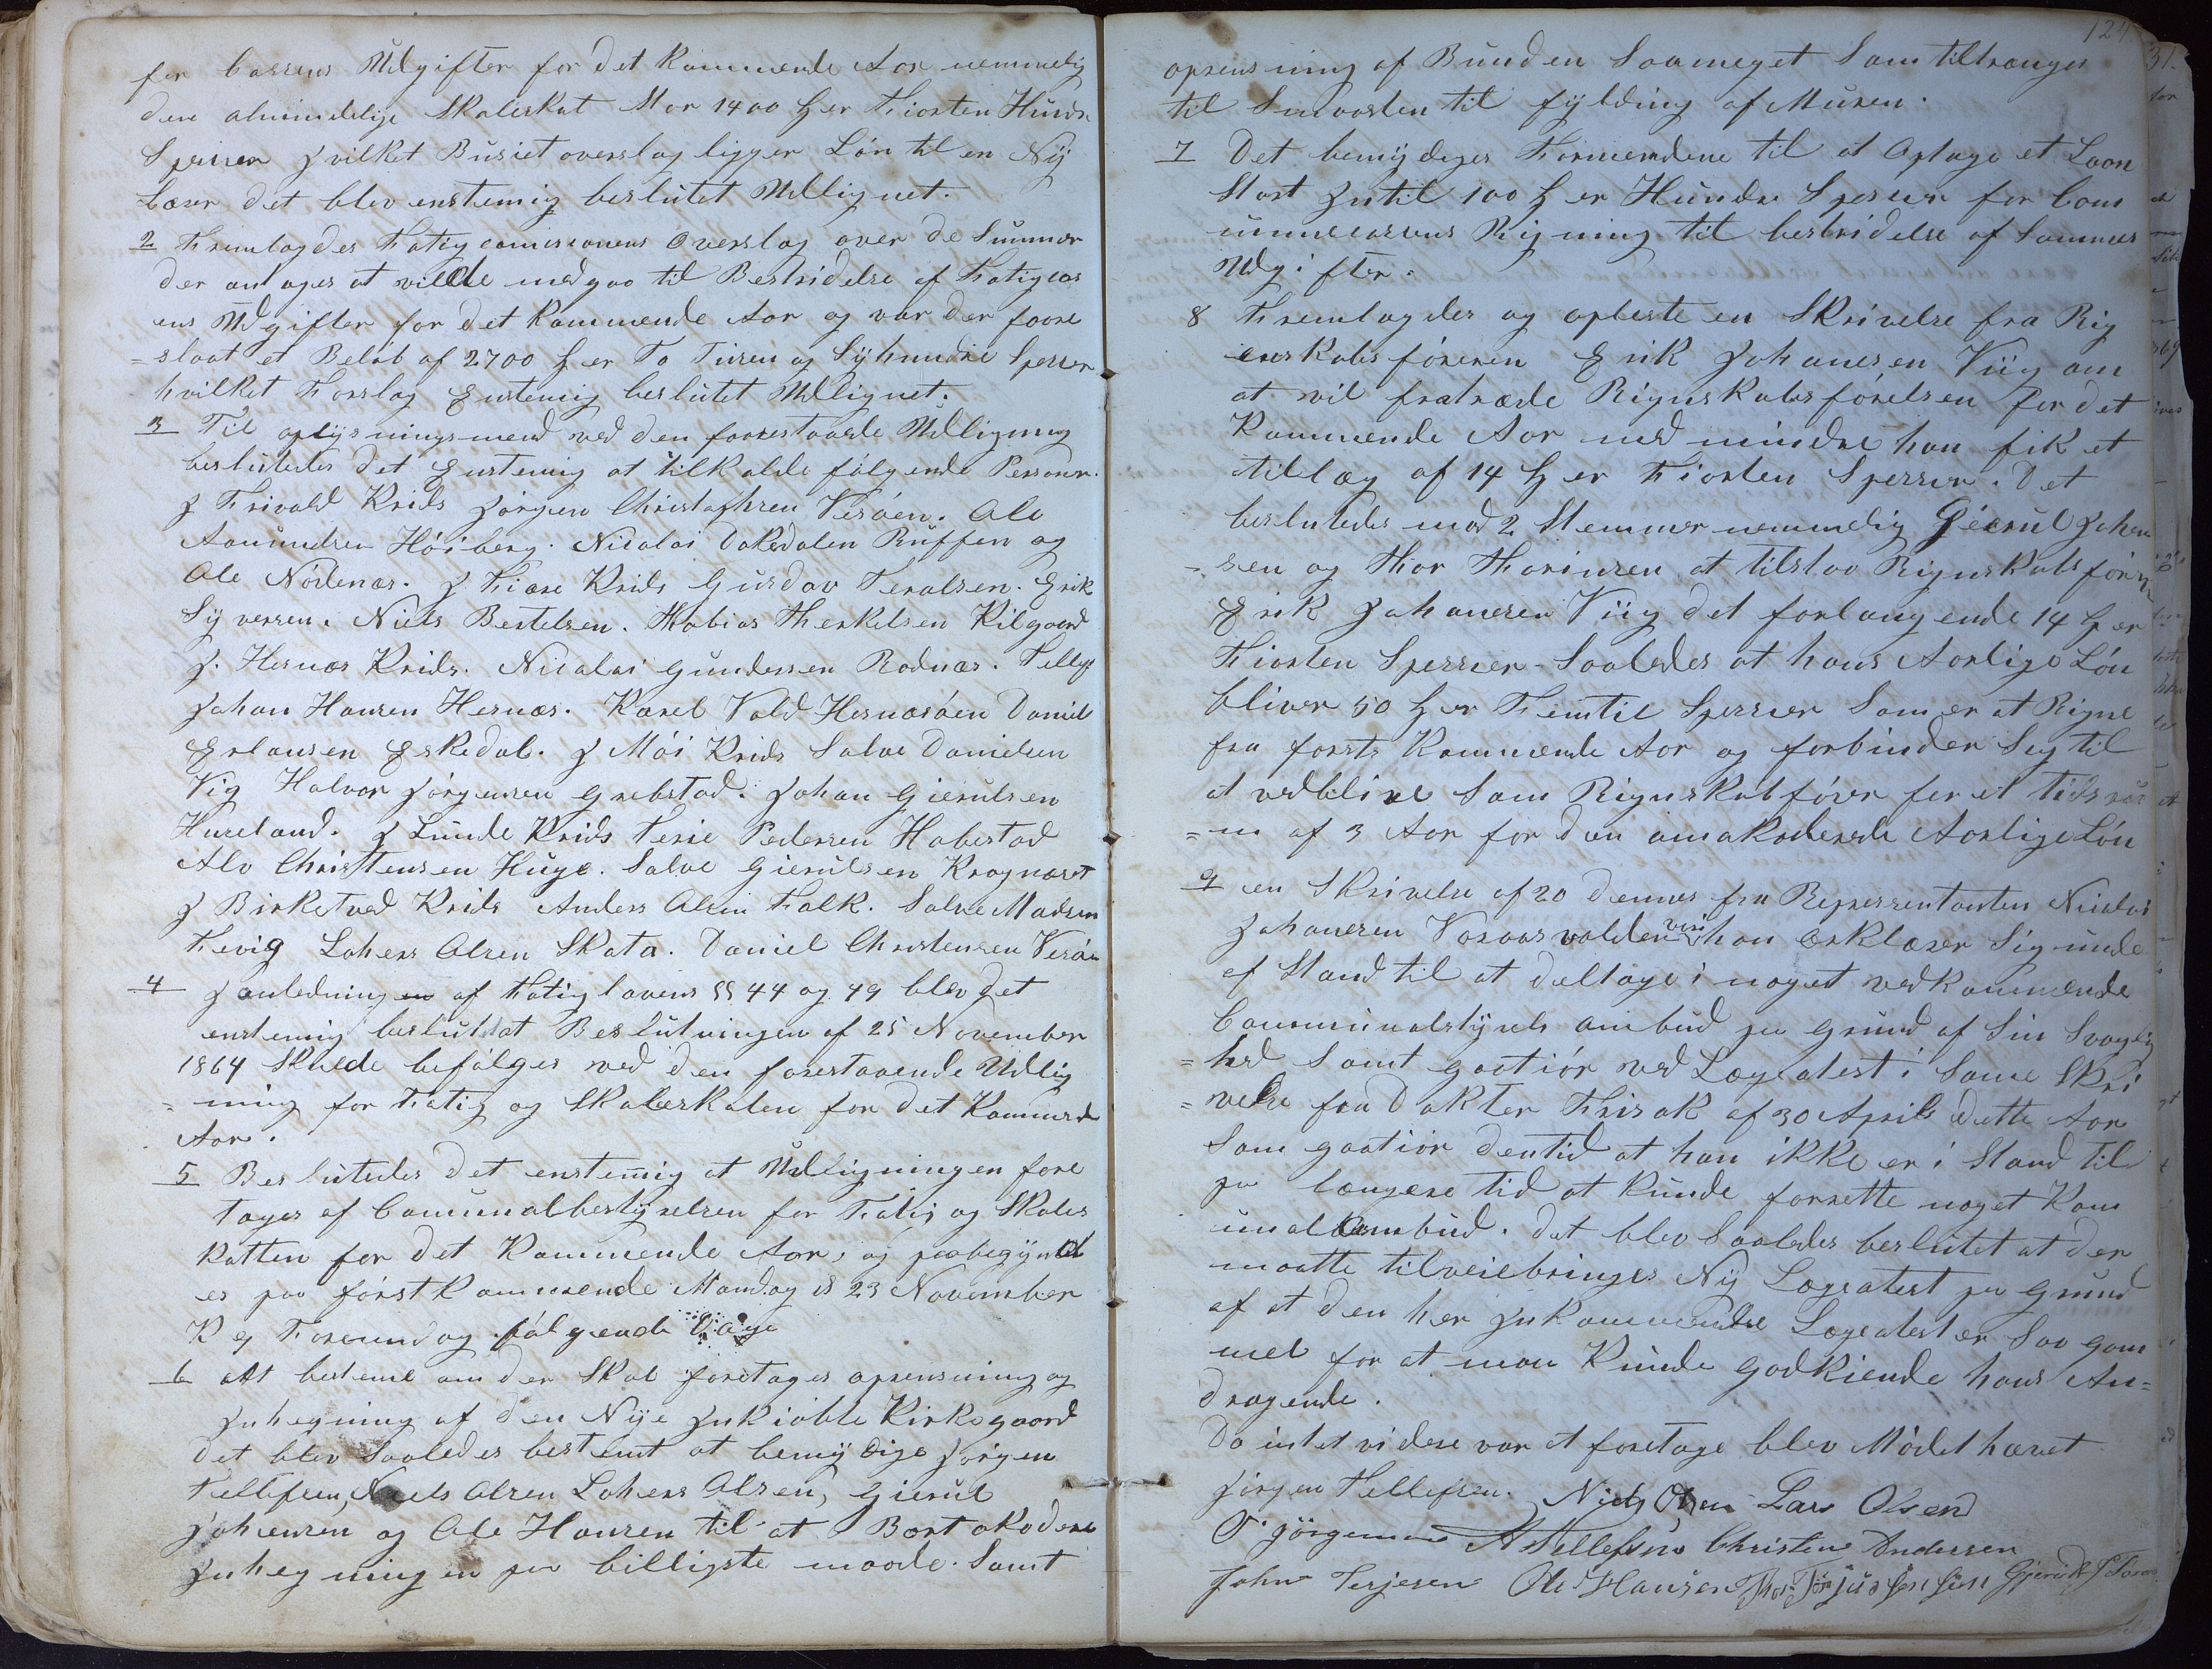 for Cassens Udgifter for det Kommende Aar nemmelig
den almindelige Skoleskat Stor 1400 ₰ er Fiorten Hundr
Spesier Jvilket Busiet overslag ligger Lön til en Nÿ
Lærer det blev enstemig beslutet Udlignet.
2 Fremlagdes Fatigcomissionens Overslag over de Summer
der antages at ville medgaa til Bestridelse af Fatigcas
ens Udgifter for det Kommende Aar og var der foore
=slaat et Belöb af 2700 ₰ er To Tusen og Sÿhundre Speser
hvilket Forslag Enstemig beslutet Udlignet.
3 Til oplÿsningsmend ved den forestaaede Udligning
beslutedes det Enstemig at tilkalde fölgende Personer.
J Frivold Krids Jörgen Christofhsen Vesöen. Ole
Aanundsen Höiberg. Nicolai Dokedalen Ruffen og
Ole Nödenæs. J Fiære Krids Gusdav Teralsen. Erik
Sÿversen. Niels Bertelsen. Thobias Therkelsen Kilgaard
J. Hesnæs Krids. Nicolai Gundersen Rodnæs. Tellefs
Johan Hansen Hesnæs. Karel Vold Hesnæsöen Daniel
Erlansen Eskedal. J Möi Krids Salve Danielsen
Vig Halvor Jörgensen Grebstad. Johan Gierulsen
Hureland. J Lunde Krids Terie Pedersen Habestad
Alv Christensen Huge. Salve Gierulsen Kragnæset
J Birketved Krids Anders Olsen Falk. Salve Madsen
Fevig Lohens Olsen Skata. Daniel Christensen Vesöen
4 J anledning en af Fatiglovens §§ 44 og 49 blev det
enstemig beslutet at Beslutningen af 25 November
1864 Skulde befölges ved den forestaaende Udlig
=ning for Fatig og Skoleskaten for det Kommende
Aar.
5 Beslutedes det enstemig at Udligningen fore
tages af Comunalbestÿrelsen for Fatig og Skoles
katten for det Kommende Aar, og paabegÿnd
es paa förstkommende Mandag d 23 November
K 9 Foremid og fölgende Dage
6 At besteme om der Skal foretages oprensning og
Jnhegning af den Nÿe Jnkiöbte Kirkegaard
det blev Saaledes bestemt at bemÿdige Jörgen
Tellefsen, Niels Olsen Lohens Olsen, Gierul
Johensen og Ole Hansen til at Bortakodere
Jnhegningen paa billigste maade. Samt
124
oprensning af Bunden Saameget Som tiltrænges
til Smaasten til fÿldning af Muren.
7 Det bemÿdeges Formendene til at Optage et Laan
Stort Jntil 100 ₰ er Hundre Speser for Com
unnecassens Rigning til bestridelse af Sammes
Udgifter.
8 Fremlagdes og opleste en Skrivelse fra Rig
enskabsföreren Erik Johanesen Viig om
at vil fratræde Rignskabsförelsen for det
Kommende Aar med mindre han fik et
tillæg af 14 ₰ er Fiorten Spesser. Det
beslutedes mod 2 Stemmer nemmelig Gierul Johen
=sen og Thor Thorinsen at tilstaa Rignskabsförer
Erik Johanesen Viig det forlangende 14 ₰ er
Fiorten Spessier Saaledes at hans Aarlige Lön
bliver 50 ₰ er Femtie Spessier Som er at Rigne
fra forste Kommende Aar og forbinder Sig til
at vedblive Som Rignskabförer for et tidsru
=m af 3 Aar for den omakoderede Aarlige Lön
9 en Skrivelse af 20 Dennes fra Repressentanten Nicolai
Johanesen Voraasvolden vori han Erklærer Sig unde
af Stand til at deltage i noget vedkommende
Communalstÿrels ombud pa Grund af Sin Svagelig
=hed Samt Gootiör ved Lægeatest i Same Skri
=velse fra Dokter Thrisak af 30 April dette Aar
Som gootiör dentid at han ikke er i Stand til
pa længere tid at kunde forrette noget Kom
unalombud. Det blev Saaledes beslutet at der
maatte tilveiebringes Nÿ Lægeatest pa Grund
af at den her Jnkommende Lægeatest er Saa gam
mel for at man Kunde Godkiende hans An=
dragende.
Da intet videre var at foretage blev Mödet hævet
Jörgen Tellefsen. Niels Olsen Lars Olsend
O. Jörgensen A Tellefsen Christen Andersen
John Terjesen Ole Hansen Thor Törjussensen